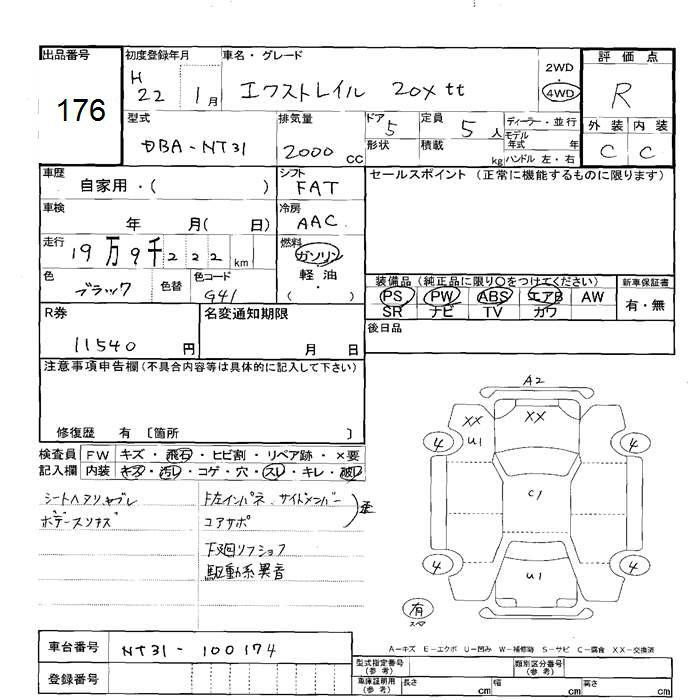 出品番号
176
初度登録年月
H 22 1月
車名・グレード
エクストレイル 20X tt
2WD
・
4WD
評価点
R
外装 内装
C C
型式
DBA-NT31
排気量
2000 CC
ドア 5
形状
定員 5 人
積載 kg
ディーラー・並行
モデル年式 年
ハンドル 左・右
車歴
自家用・( )
シフト
FAT
セールスポイント (正常に機能するものに限ります)
車検
年 月( 日)
冷房
AAC
走行
19万9千222 km
燃料
ガソリン
軽油
・
( )
色
ブラック
色替
色コード
G41
装備品 (純正品に限り○をつけてください)
PS PW ABS エアB AW
SR ナビ TV カワ
新車保証書
有・無
R券
11540 円
名変通知期限
月 日
後日品
注意事項申告欄 (不具合内容等は具体的に記入して下さい)
修復歴 有 〔箇所 〕
検査員記入欄
FW キズ・飛石・ヒビ割・リペア跡・×要
内装 キズ・汚レ・コゲ・穴・スレ・キレ・破レ
シートヘタリ、ヤブレ
ボデースリキズ
下左インパネ、サイドメンバー
コアサポ
下廻リフショク
駆動系異音
A2
XX
U1
XX
4
4
C1
4
4
U1
有
スペア
A-キズ E-エクボ U-凹み W-補修跡 S-サビ C-腐食 XX-交換済
車台番号
NT31-100174
登録番号
型式指定番号
(参考)
類別区分番号
(参考)
車庫証明用
(参考)
長さ cm 幅 cm 高さ cm